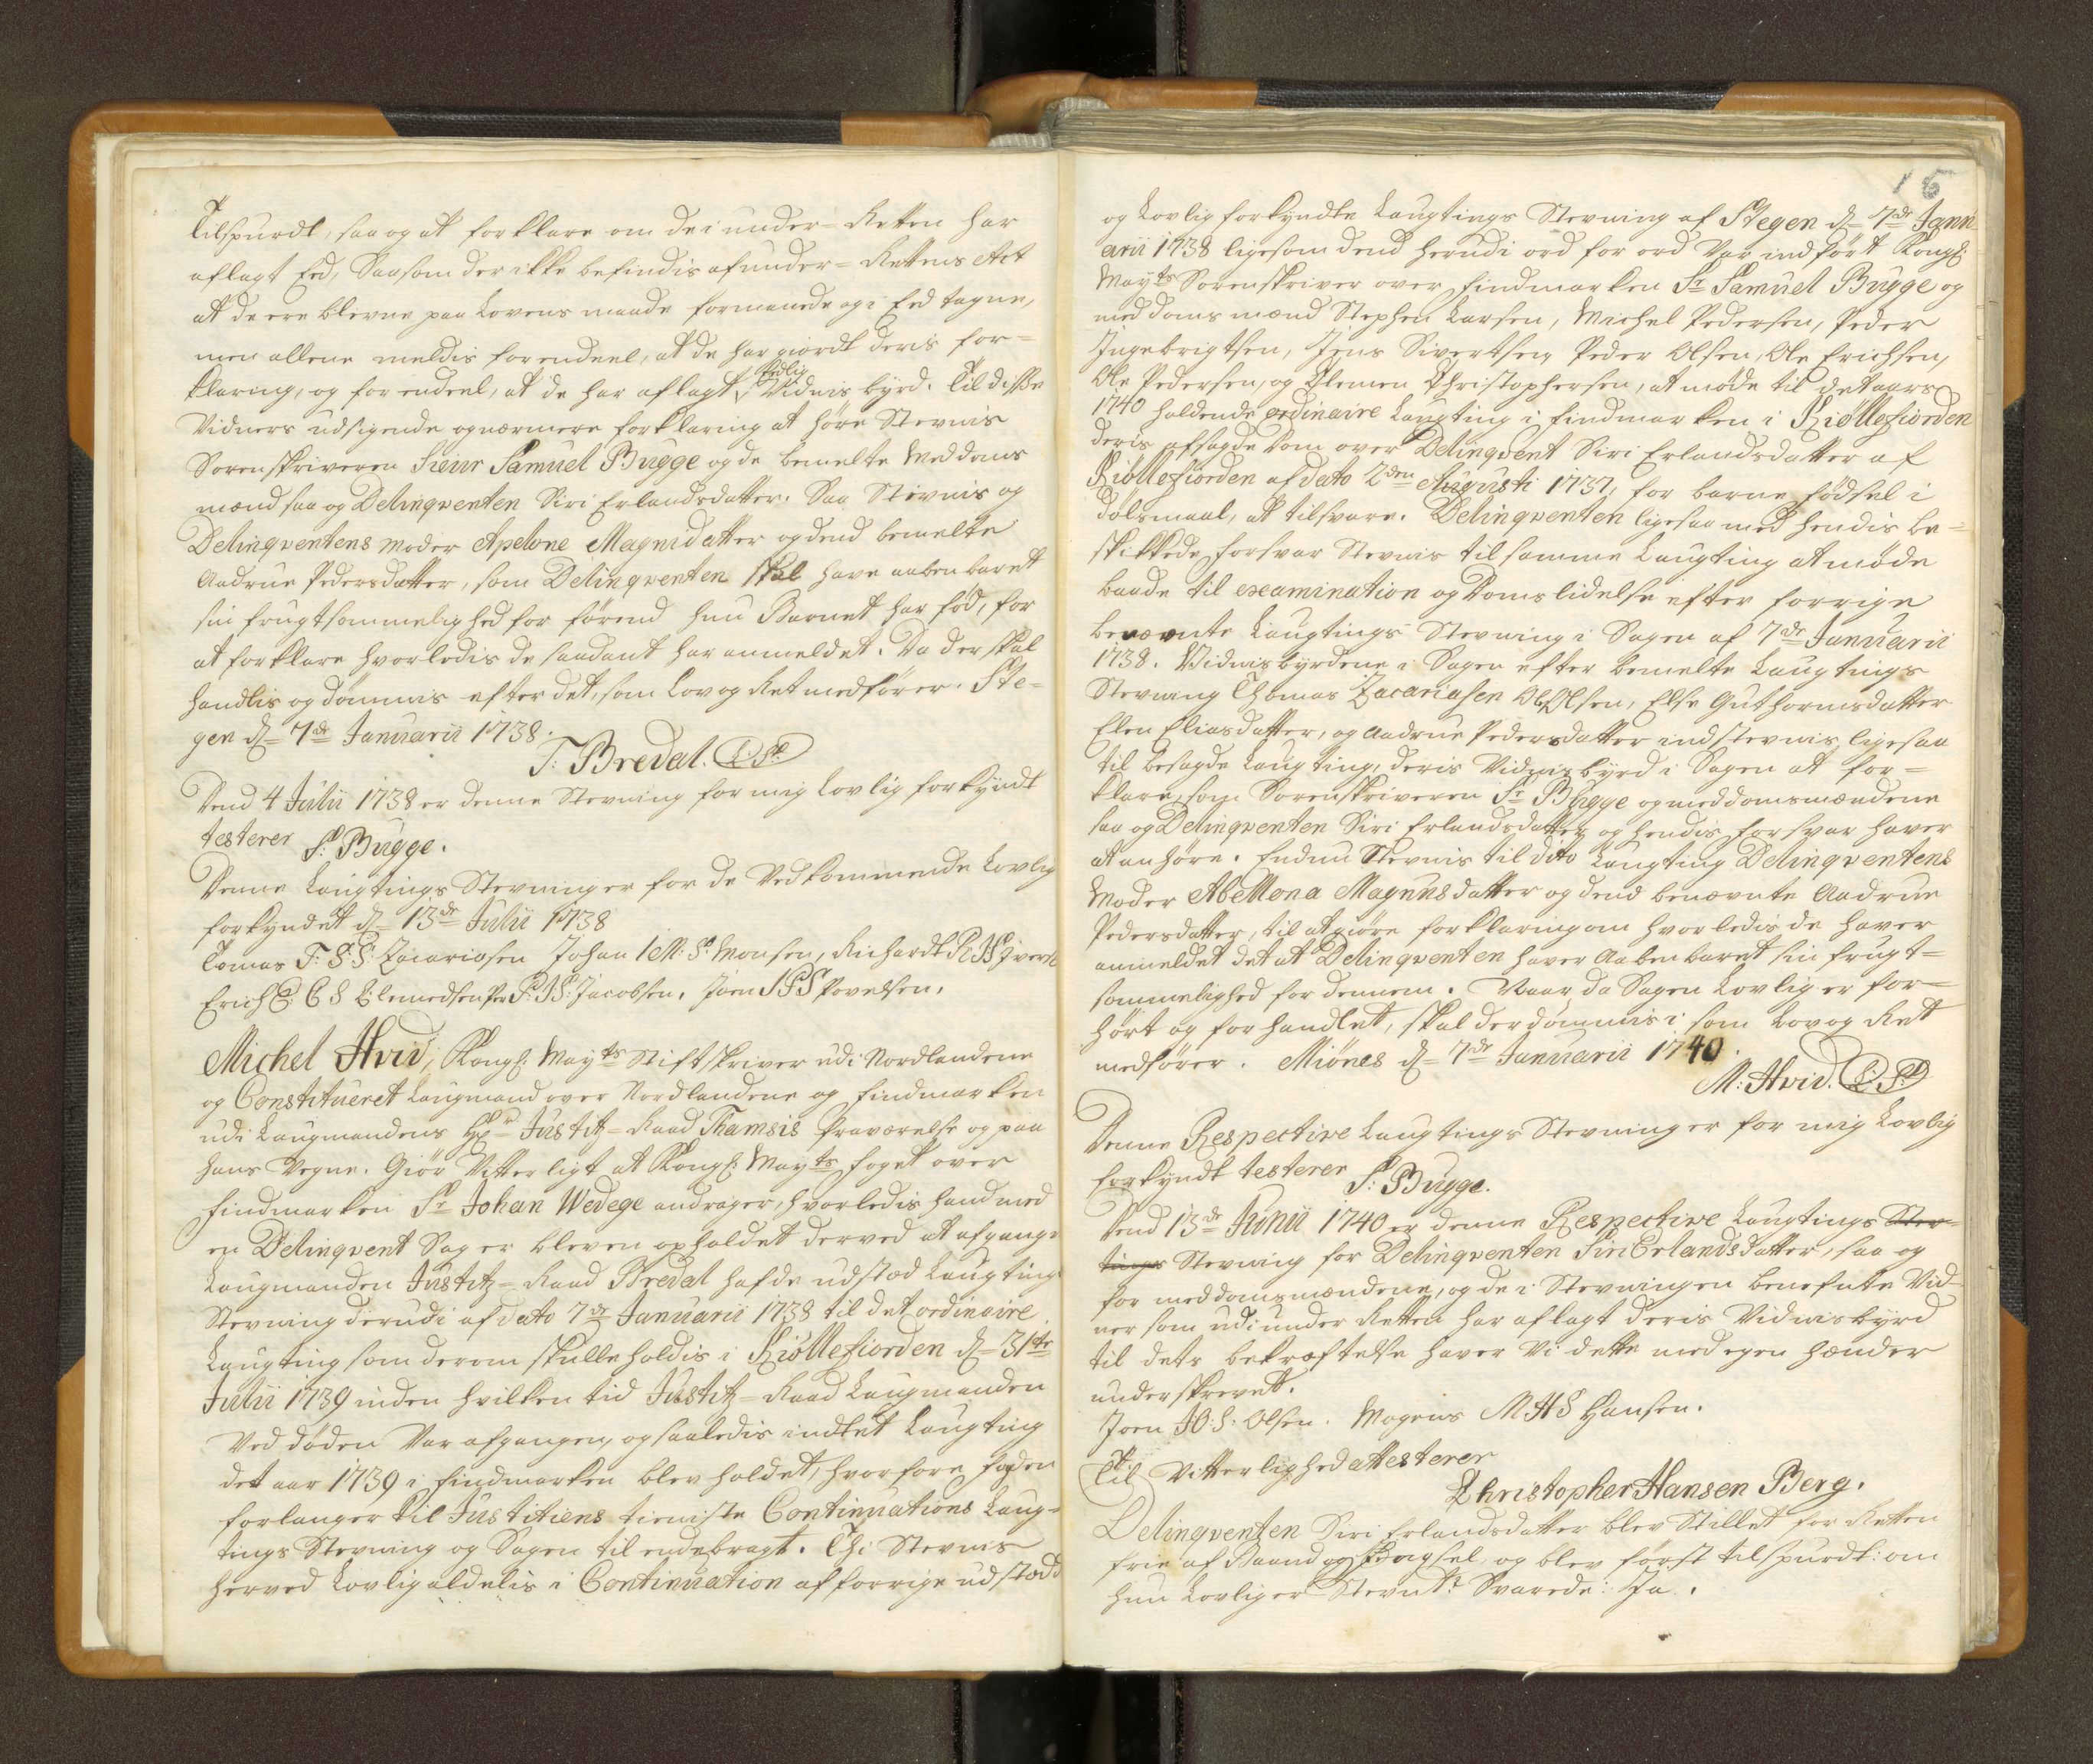 Tilspurdt, saa og at forklare om de i under-Retten har
aflagt Eed, Saasom der ikke befindis af under-Rettens Act
at de ere blevne paa Lovens maade formanede og i Eed tagne,
men allene meldis for endeel, at de har giordt deris for-
klaring, og for endeel, at de har aflagt Eedlig Vidnis byrd. Til disse
Vidners udsigende og nærmere forklaring at høre Stevnis
Sorenskriveren Sieur Samuel Bugge og de bemelte Meddoms
mænd saa og Delinqventen Siri Erlandsdatter. Saa Stevnis og
Delinqventens moder Apelone Magnidatter og dend bemelte
Aadrue Pedersdatter, som Delinqventen skal have aabenbaret
sin frugtsommelighed for førend hun Barnet har fød, for
at forklare hvorledis de saadant har anmeldet. Da der skal
handlis og dømmis efter det, som Lov og Ret medfører. Ste-
gen d. 7de Januarii 1738.
T: Bredal. (L.S.)
Dend 4 Julii 1738 er denne Stevning for mig Lovlig forkyndt
testerer S: Bugge.
Denne Laugtings Stevning er for de Vedkommende Lovlig
forkyndet d. 13de Julii 1738
Tomas T: S: S: Zacariasen Johan I M: S: Monsen, Richardt R I S Iversen
Erich E: C S Clemedsen Per P: I S: Jacobsen. Joen I P S Povelsen.
Michel Hvid, Kongl: Mayts Stiftskriver udi Nordlandene
og Constitueret Laugmand over Nordlandene og Findmarken
udi Laugmandens Hr. Justitz-Raad Thamsis fraværelse og paa
hans Vegne. Giør Vitterligt at Kongl: Mayts foget over
Findmarken Sr Johan Wedege andrager, hvorledis hand med
en Delinqvent Sag er bleven opholdet derved at afgangne
Laugmanden Justitz-Raad Bredal hafde udstæd Laugtings
Stevning derudi af dato 7de Januarii 1738 til det ordinaire
Laugting som derom skulle holdis i Kiøllefiorden d. 31te
Julii 1739 inden hvilken tid Justitz-Raad Laugmanden
Ved døden Var afgangen, og saaledis indtet Laugting
det aar 1739 i Findmarken blev holdet, hvorfore fogden
forlanger til Justitiens tieniste Continuations Laug-
tings Stevning og Sagen til endebragt. Thi Stevnis
herved Lovlig aldelis i Continuation af forrige udstædd
16
og Lovlig forkyndte Laugtings Stevning af Stegen d. 7de Janu-
arii 1738 ligesom dend herudi ord for ord Var indført Kongl:
Mayts Sorenskriver over Findmarken Sr Samuel Bugge og
meddoms mænd Stephen Larsen, Michel Pedersen, Peder
Ingebrigtsen, Jens Sivertsen Peder Olsen, Ole Erichsen,
Ole Pedersen, og Clemen Christophersen, at møde til det aars
1740 holdende ordinaire Laugting i Findmarken i Kiøllefiorden
deris afsagde Dom over Delinqvent Siri Erlandsdatter af
Kiøllefiorden af dato 2den Augusti 1737, for barne fødsel i
dølsmaal, at tilsvare. Delinqventen ligesaa med hendis be-
skikkede forsvar Stevnis til samme Laugting at møde
baade til examination og Doms lidelse efter forrige
benævnte Laugtings Stevning i Sagen af 7de Januarii
1738. Vidnisbyrdene i Sagen efter bemelte Laugtings
Stevning Thomas Zacariasen Ole Olsen, Else Guthormsdatter
Elen Eliasdatter, og Aadrue Pedersdatter indstevnis ligesaa
til besagde Laugting, deris Vidnisbyrd i Sagen at for-
klare, som Sorenskriveren Sr Bugge og meddomsmændene
saa og Delinqventen Siri Erlandsdatter og hendis forsvar haver
at anhøre. Endnu Stevnis til dito Laugting Delinqventens
Moder Abellona Magnusdatter og dend benævnte Aadrue
Pedersdatter, til at giøre forklaring om hvorledis de haver
anmeldet det at Delinqventen haver Aabenbaret sin frugt-
sommelighed for dennem. Naar da Sagen Lovlig er for-
hørt og forhandlet, skal der dømmis i som Lov og Ret
medfører. Miønes d. 7de Januarii 1740.
M: Hvid. (L.S.)
Denne Respective Laugtings Stevning er for mig Lovlig
forkyndt testerer S: Bugge.
Dend 13de Junii 1740 er denne Respective Laugtings Stev-
tings Stevning for Delinqventen Siri Erlandsdatter, saa og
for meddomsmændene, og de i Stevningen benefnte Vid-
ner som udi under Retten har aflagt deris Vidnisbyrd
til dets bekræftelse haver Vi dette med egen hænder
underskrevet.
Joen I O: S: Olsen. Mogens M H S Hansen.
Til Vitterlighed attesterer
Christopher Hansen Berg.
Delinqventen Siri Erlandsdatter blev Stillet for Retten
frie af Baand og Fængsel, og blev først tilspurdt: om
hun Lovlig er Stevnt? Svarede: Ja.